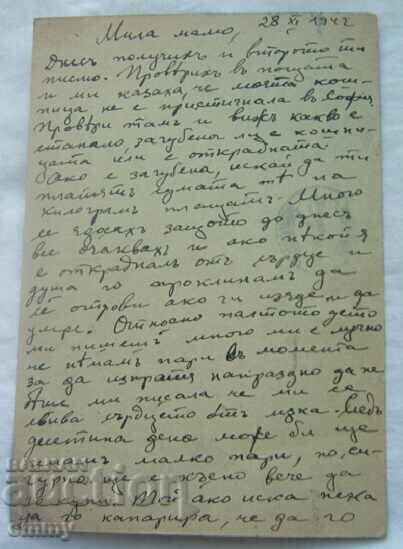 Мила мамо,
28 XI 1942
Днесъ получихъ и второто ти
писмо. Провѣрихъ въ пощата
и ми казаха, че моята кош-
ница не е пристигнала въ София.
Провѣри тамъ и вижъ какво е
станало, загубена ли е кошни-
цата или е открадната.
Ако е загубена, искай да ти
платятъ сумата тѣ на
килограмъ плащатъ. Много
се ядосахъ защото до днесъ
все очаквахъ и ако нѣкой я
е открадналъ отъ сърдце и
душа го проклинамъ да
се отрови ако ги изяде и да
умре. Относно палтото дето
ми пишешъ много ми е мъчно
че нѣмамъ пари въ момента
за да изпратя
ми писала че ми се
свива сърдцето отъ мъка. Следъ
десетина дена може би ще
имамъ малко пари, но, си-
гурно ще е късно вече да
ти дамъ. Той ако иска нека
да го капарира, че да го